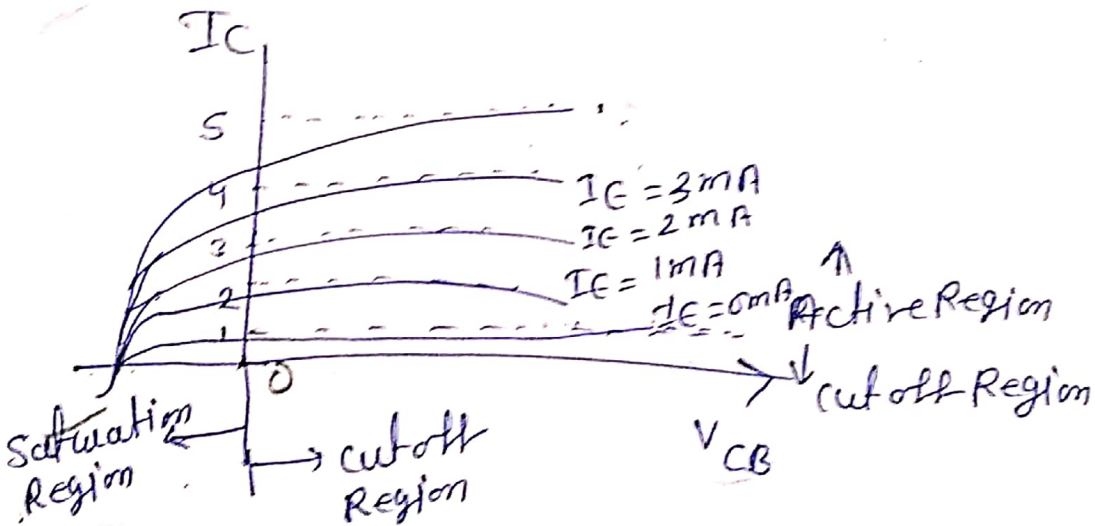 IC
5
4
IE = 3mA
3
IE = 2mA
2
IE = 1mA
1
IE = 0mA
Active Region
0
cutoff Region
Saturation
Region
cutoff
Region
VCB